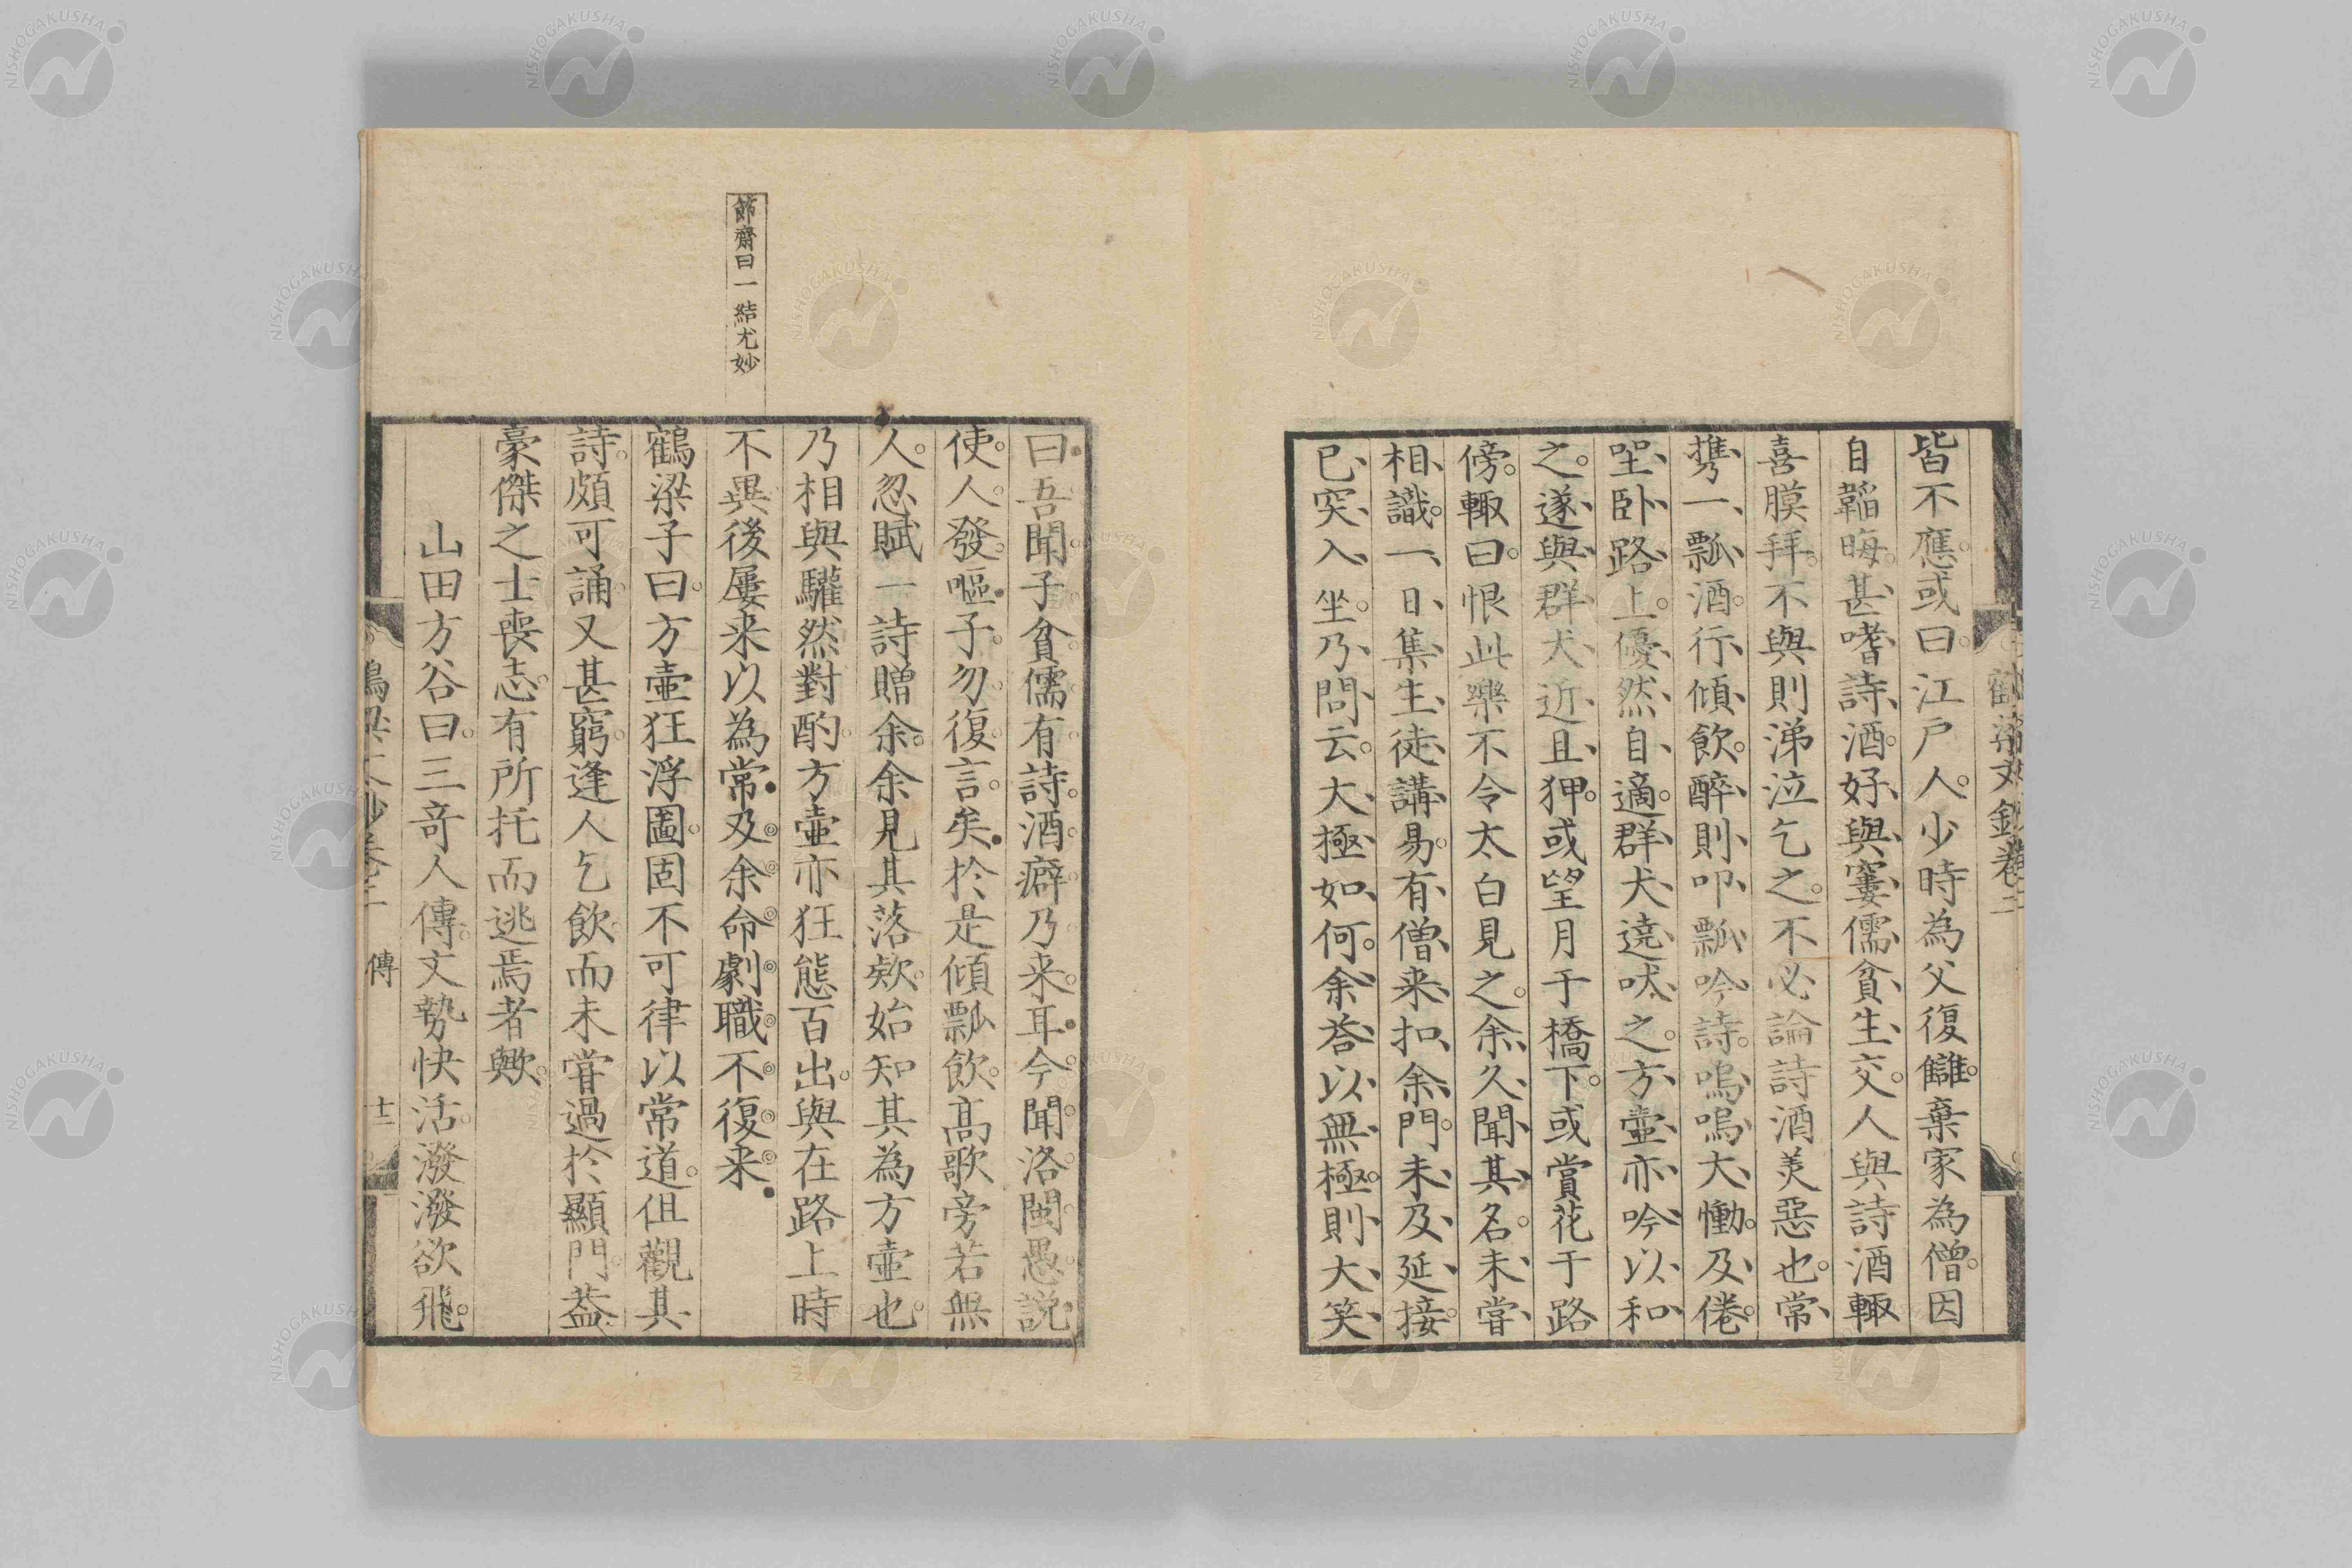 皆不應或曰江戸人少時為父復讎棄家為僧因
自韜晦甚嗜詩酒好與窶儒貧生交人與詩酒輙
喜膜拜不與則涕泣乞之不必論詩酒美惡也常
携一瓢酒行傾飲醉則叩瓢吟詩嗚嗚大慟及倦
坐卧路上優然自適群犬遶吠之方壷亦吟以和
之遂與群犬近且狎或望月于橋下或賞花于路
傍輙曰恨此樂不令太白見之余久聞其名未嘗
相識一日集生徒講易有僧来扣余門未及延接
已突入坐乃問云大極如何余荅以無極則大笑
曰吾聞子貧儒有詩酒癖乃来耳今聞洛閩愚説
使人發嘔子勿復言矣於是傾瓢飲高歌旁若無
人忽賦一詩贈余余見其落欵始知其為方壷也
乃相與驩然對酌方壷亦狂態百出與在路上時
不異後屡来以為常及余命劇職不復来
鶴梁子曰方壷狂浮圖固不可律以常道但觀其
詩頗可誦又甚窮逢人乞飲而未嘗過於顯門葢
豪傑之士喪志有所托而逃焉者歟
山田方谷曰三奇人傳文勢快活潑潑欲飛
節齋曰一結尤妙
鶴梁文鈔卷二
傳
十一
NISHOGAKUSHA